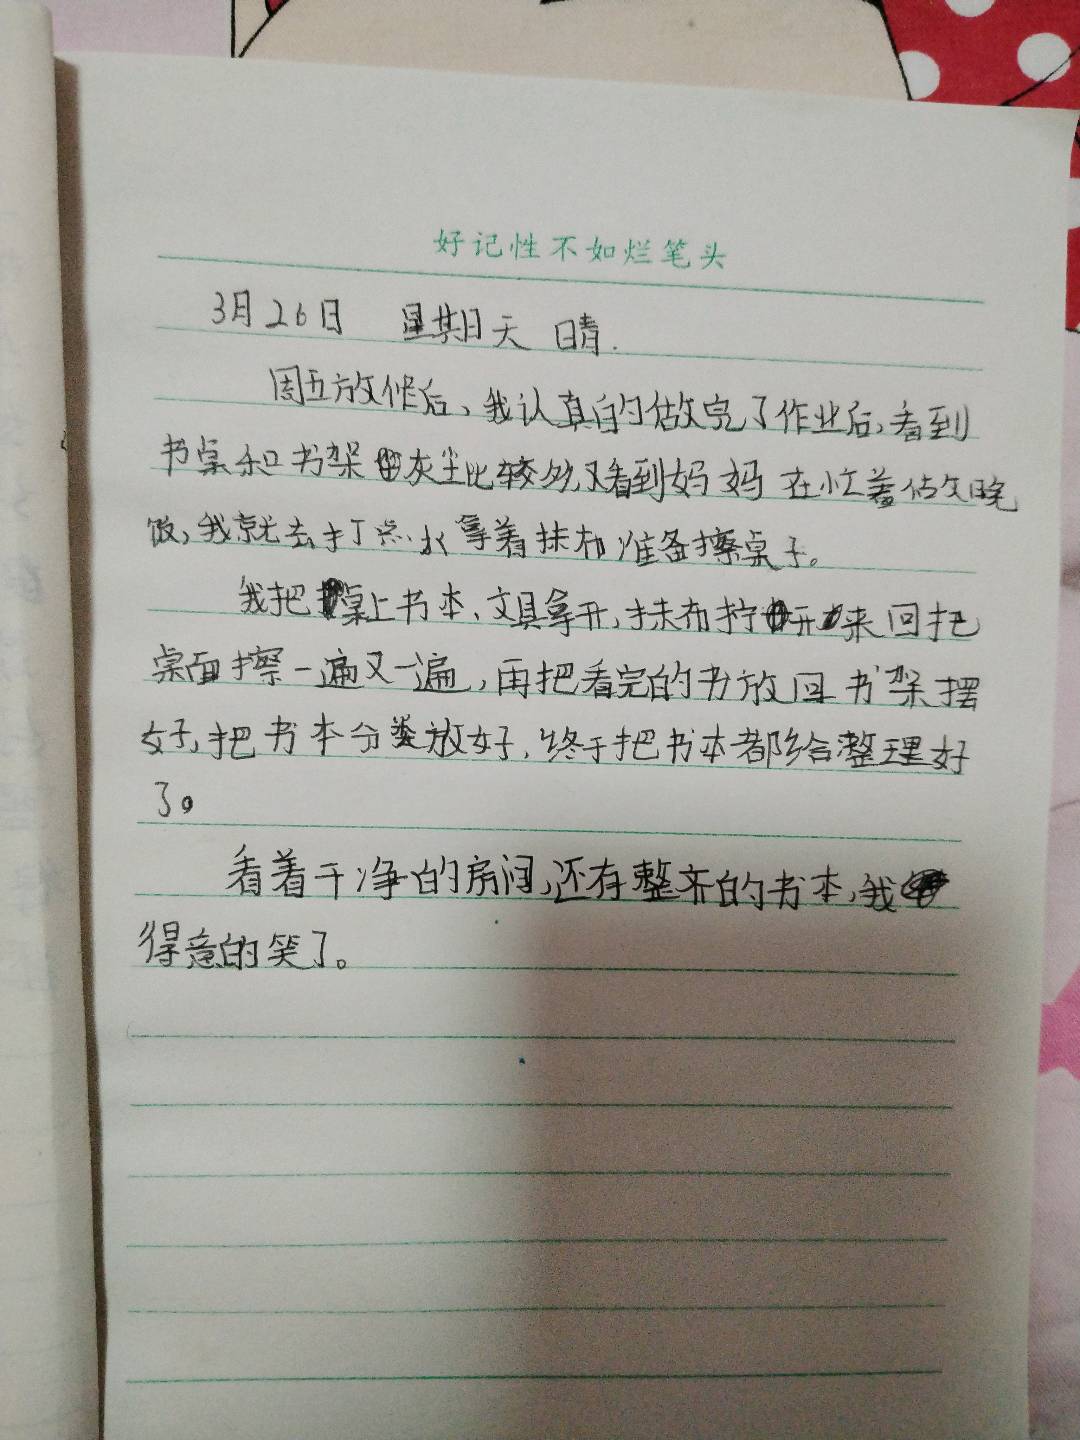 好记性不如烂笔头
3月26日 星期天 晴.
周五放作后、我认真的做完了作业后,看到
书桌和书架灰尘比较多,又看到妈妈在忙着做晚
饭,我就去打点水拿着抹布准备擦桌子。
我把桌上书本、文具拿开,抹布拧开来回把
桌面擦一遍又一遍,再把看完的书放回书架摆
好,把书本分类放好,终于把书本都给整理好
了。
看着干净的房间,还有整齐的书本,我
得意的笑了。